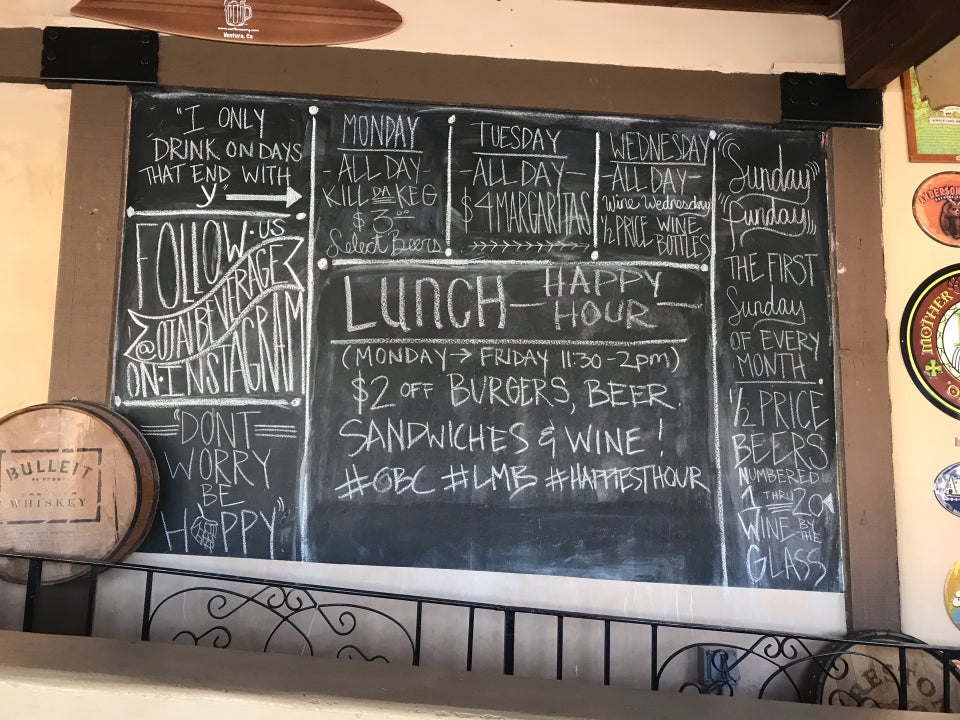 Ventura, Ca
"I ONLY
DRINK ON DAYS
THAT END WITH
Y"
FOLLOW·US
@OJAIBEVERAGE
ON·INSTAGRAM
"DONT
WORRY
BE
HOPPY"
MONDAY
-ALL DAY-
KILL DA KEG
$3.00
Select Beers
TUESDAY
-ALL DAY-
$4 MARGARITAS
WEDNESDAY
-ALL DAY-
Wine Wednesday
1/2 PRICE WINE
BOTTLES
LUNCH HAPPY
HOUR
(MONDAY → FRIDAY 11:30-2PM)
$2 OFF BURGERS, BEER,
SANDWICHES & WINE!
#OBC #LMB #HAPPIESTHOUR
"Sunday
Funday"
THE FIRST
Sunday
OF EVERY
MONTH.
1/2 PRICE
BEERS
NUMBERED
1 THRU 20
WINE BY THE
GLASS
BULLEIT
WHISKEY
ANDERSON
MOTHER